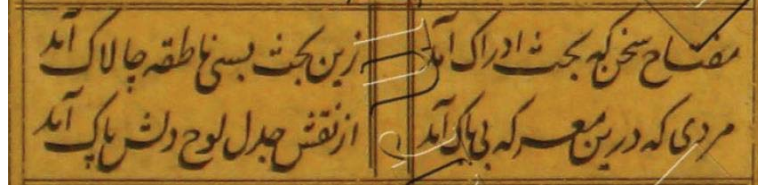 مفتاح سخن که بحث ادراک آمد
زین بحث بسی ناطقه چالاک آمد
مردی که درین معرکه بی باک آمد
از نقش جدل لوح دلش پاک آمد